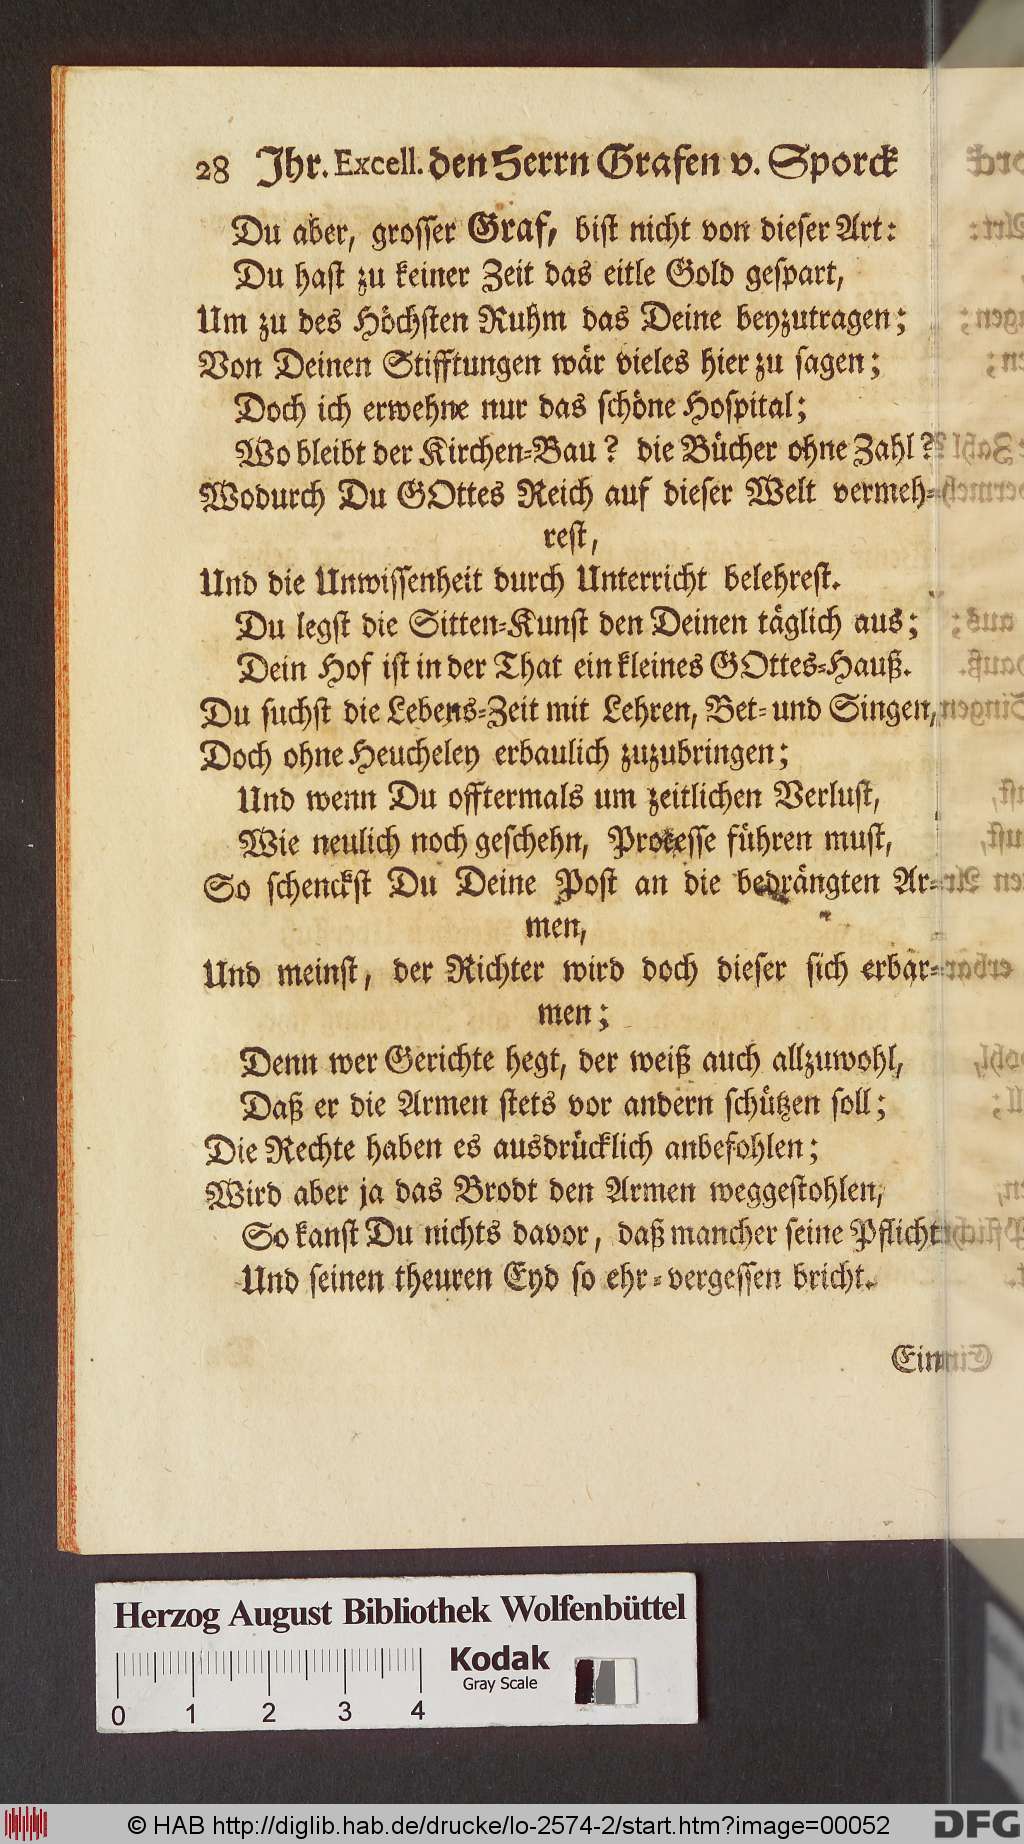 28 Ihr. Excell. den Herrn Grafen v. Sporck
Du aber, grosser Graf, bist nicht von dieser Art:
Du hast zu keiner Zeit das eitle Gold gespart,
Um zu des Höchsten Ruhm das Deine beyzutragen;
Von Deinen Stifftungen wär vieles hier zu sagen;
Doch ich erwehne nur das schöne Hospital;
Wo bleibt der Kirchen-Bau? die Bücher ohne Zahl?
Wodurch Du GOttes Reich auf dieser Welt vermeh-
rest,
Und die Unwissenheit durch Unterricht belehrest.
Du legst die Sitten-Kunst den Deinen täglich aus;
Dein Hof ist in der That ein kleines GOttes-Hauß.
Du suchst die Lebens-Zeit mit Lehren, Bet- und Singen,
Doch ohne Heucheley erbaulich zuzubringen;
Und wenn Du offtermals um zeitlichen Verlust,
Wie neulich noch geschehn, Processe führen must,
So schenckst Du Deine Post an die bedrängten Ar-
men,
Und meinst, der Richter wird doch dieser sich erbar-
men;
Denn wer Gerichte hegt, der weiß auch allzuwohl,
Daß er die Armen stets vor andern schützen soll;
Die Rechte haben es ausdrücklich anbefohlen;
Wird aber ja das Brodt den Armen weggestohlen,
So kanst Du nichts davor, daß mancher seine Pflicht
Und seinen theuren Eyd so ehr-vergessen bricht.
Ein
Herzog August Bibliothek Wolfenbüttel
Kodak
Gray Scale
0 1 2 3 4
© HAB http://diglib.hab.de/drucke/lo-2574-2/start.htm?image=00052
DFG